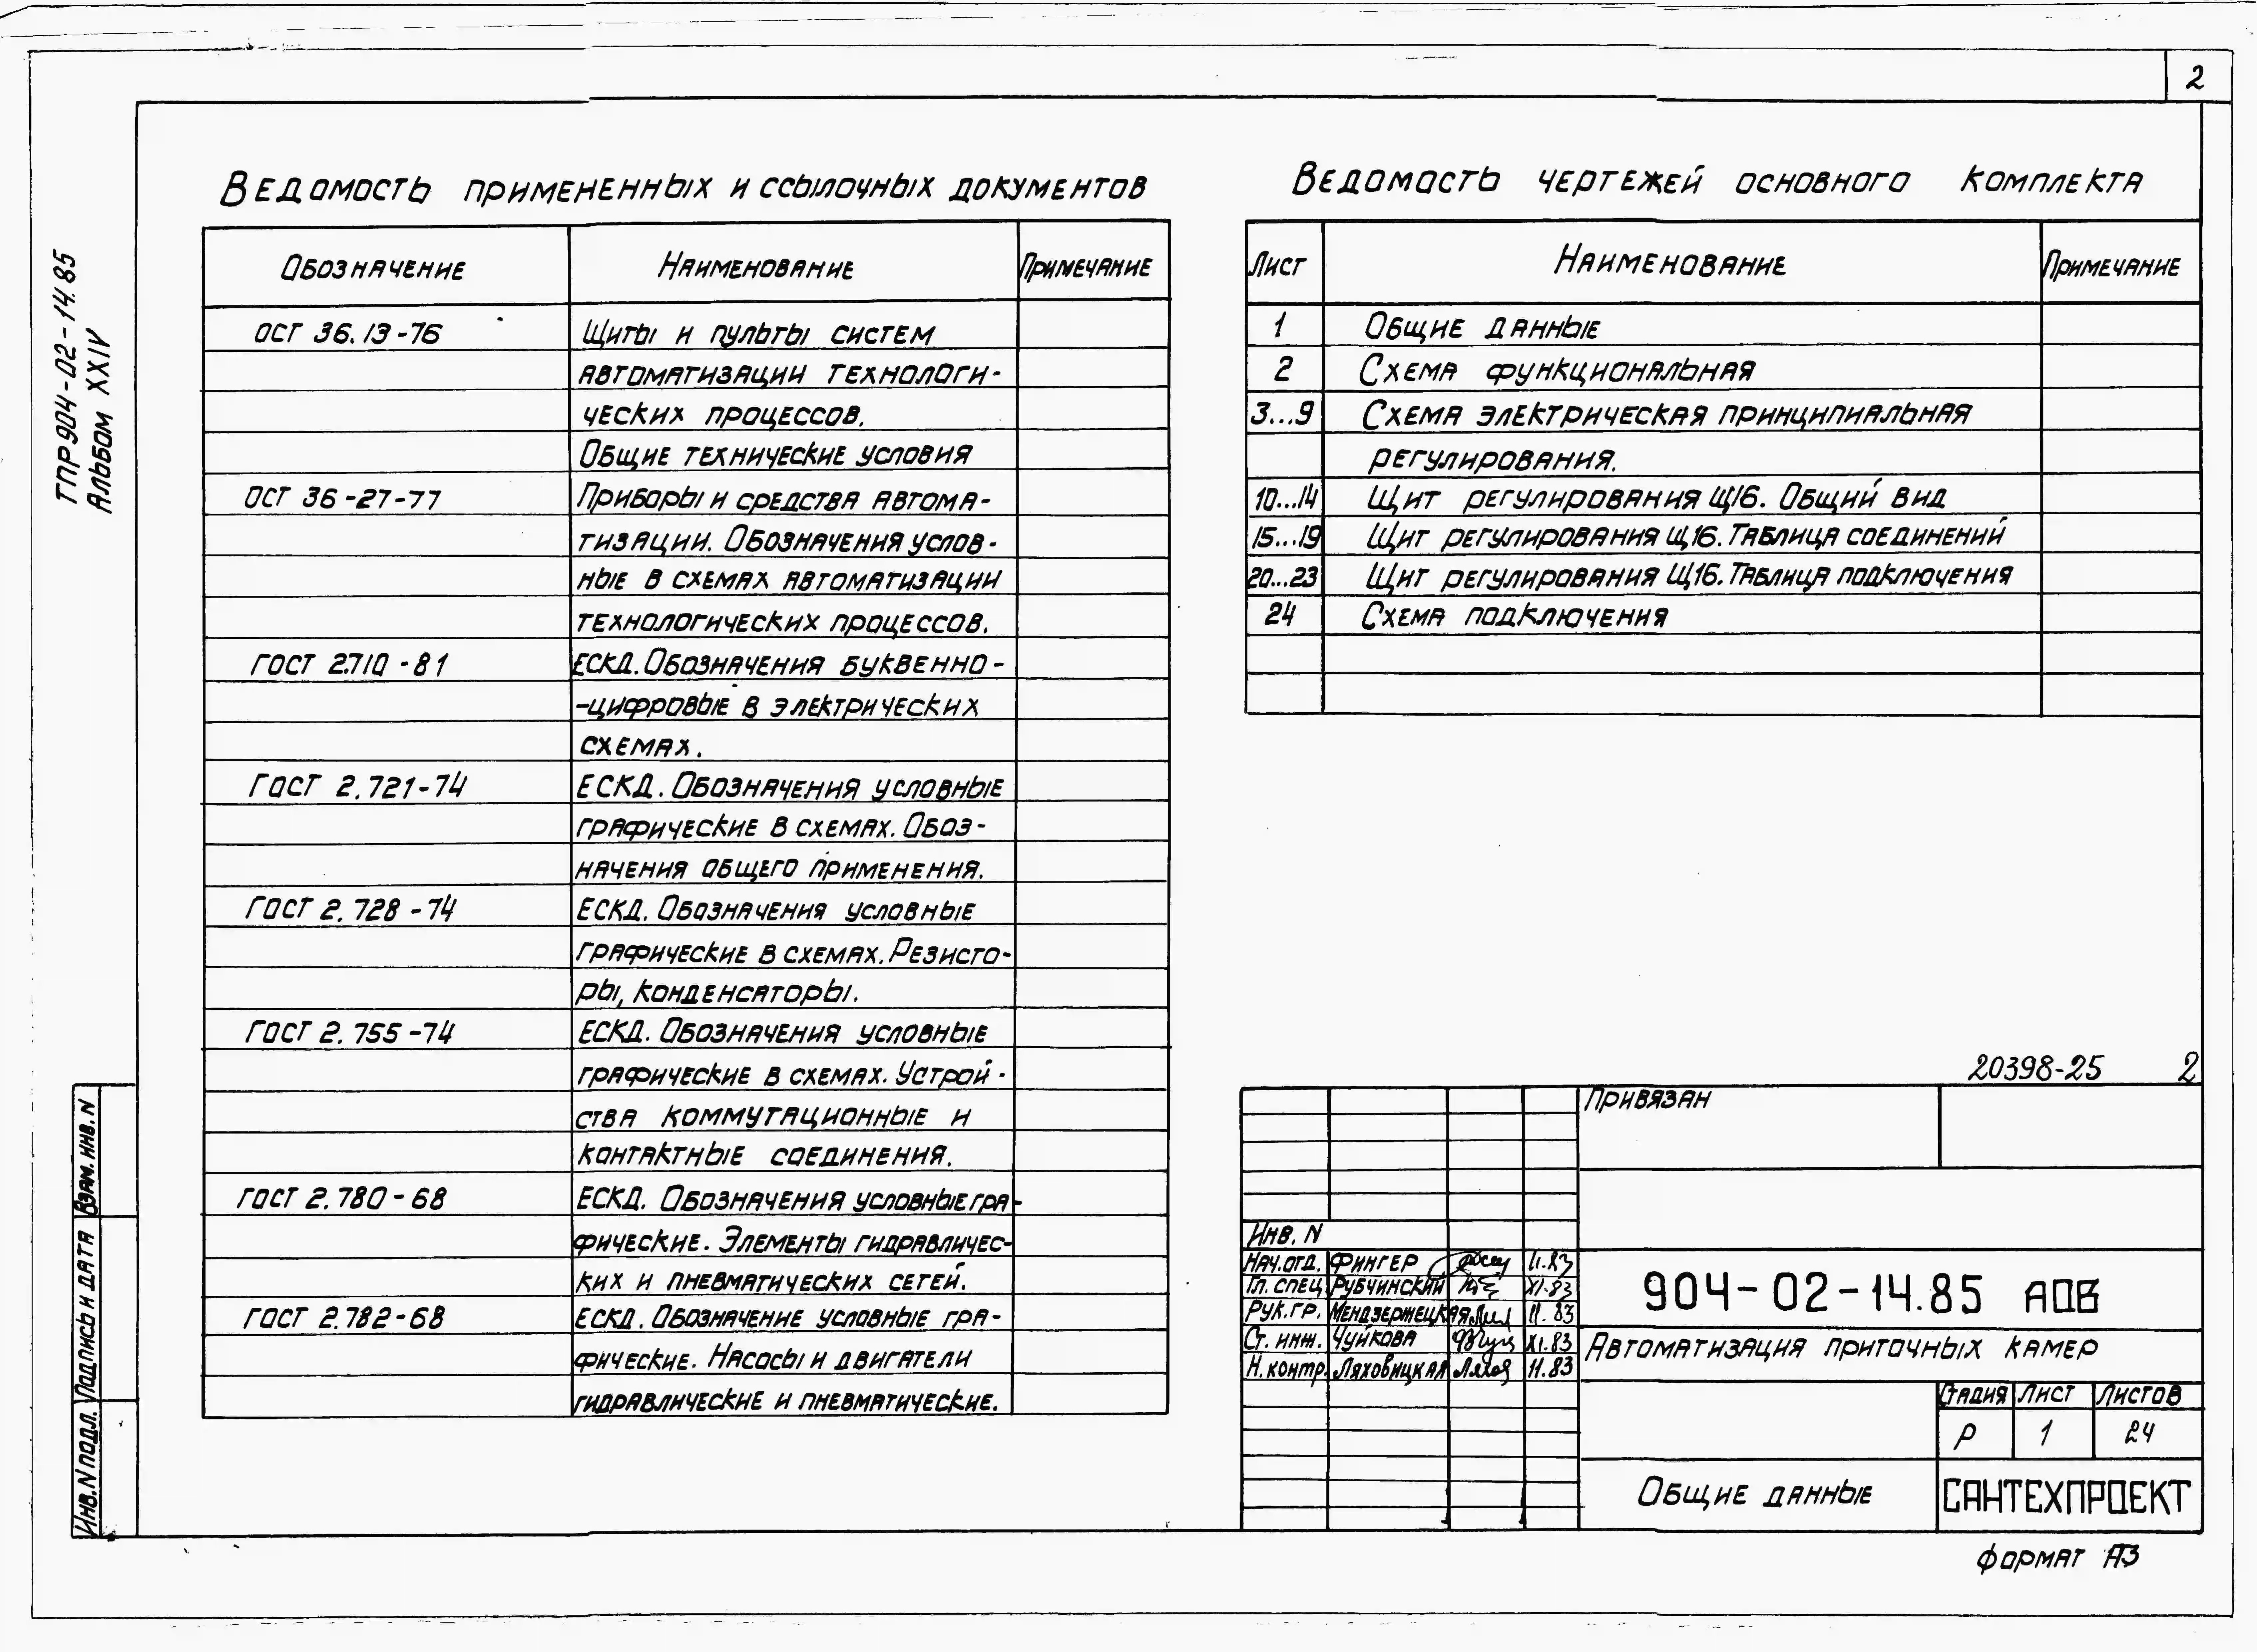 2
ТПР 904-02-14.85
Альбом XXIV
Ведомость примененных и ссылочных документов
Обозначение Наименование Примечание
ОСТ 36.13-76 Щиты и пульты систем
автоматизации технологи-
ческих процессов.
Общие технические условия
ОСТ 36-27-77 Приборы и средства автома-
тизации. Обозначения услов-
ные в схемах автоматизации
технологических процессов.
ГОСТ 2.710-81 ЕСКД. Обозначения буквенно-
-цифровые в электрических
схемах.
ГОСТ 2.721-74 ЕСКД. Обозначения условные
графические в схемах. Обоз-
начения общего применения.
ГОСТ 2.728-74 ЕСКД. Обозначения условные
графические в схемах. Резисто-
ры, конденсаторы.
ГОСТ 2.755-74 ЕСКД. Обозначения условные
графические в схемах. Устрой-
ства коммутационные и
контактные соединения.
ГОСТ 2.780-68 ЕСКД. Обозначения условные гра-
фические. Элементы гидравличес-
ких и пневматических сетей.
ГОСТ 2.782-68 ЕСКД. Обозначение условные гра-
фические. Насосы и двигатели
гидравлические и пневматические.
Ведомость чертежей основного комплекта
Лист Наименование Примечание
1 Общие данные
2 Схема функциональная
3...9 Схема электрическая принципиальная
регулирования.
10...14 Щит регулирования Щ16. Общий вид
15...19 Щит регулирования Щ16. Таблица соединений
20...23 Щит регулирования Щ16. Таблица подключения
24 Схема подключения
20398-25 2
Привязан
Инв. N
Нач. отд. Фингер 11.83
Гл. спец. Рубчинский XI.83
Рук. гр. Мендзержецкая 11.83
Ст. инж. Чуйкова XI.83
Н. контр. Ляховицкая 11.83
904-02-14.85 АОВ
Автоматизация приточных камер
Стадия Лист Листов
Р 1 24
Общие данные
САНТЕХПРОЕКТ
Формат А3
Взам. инв. N
Подпись и дата
Инв. N подл.